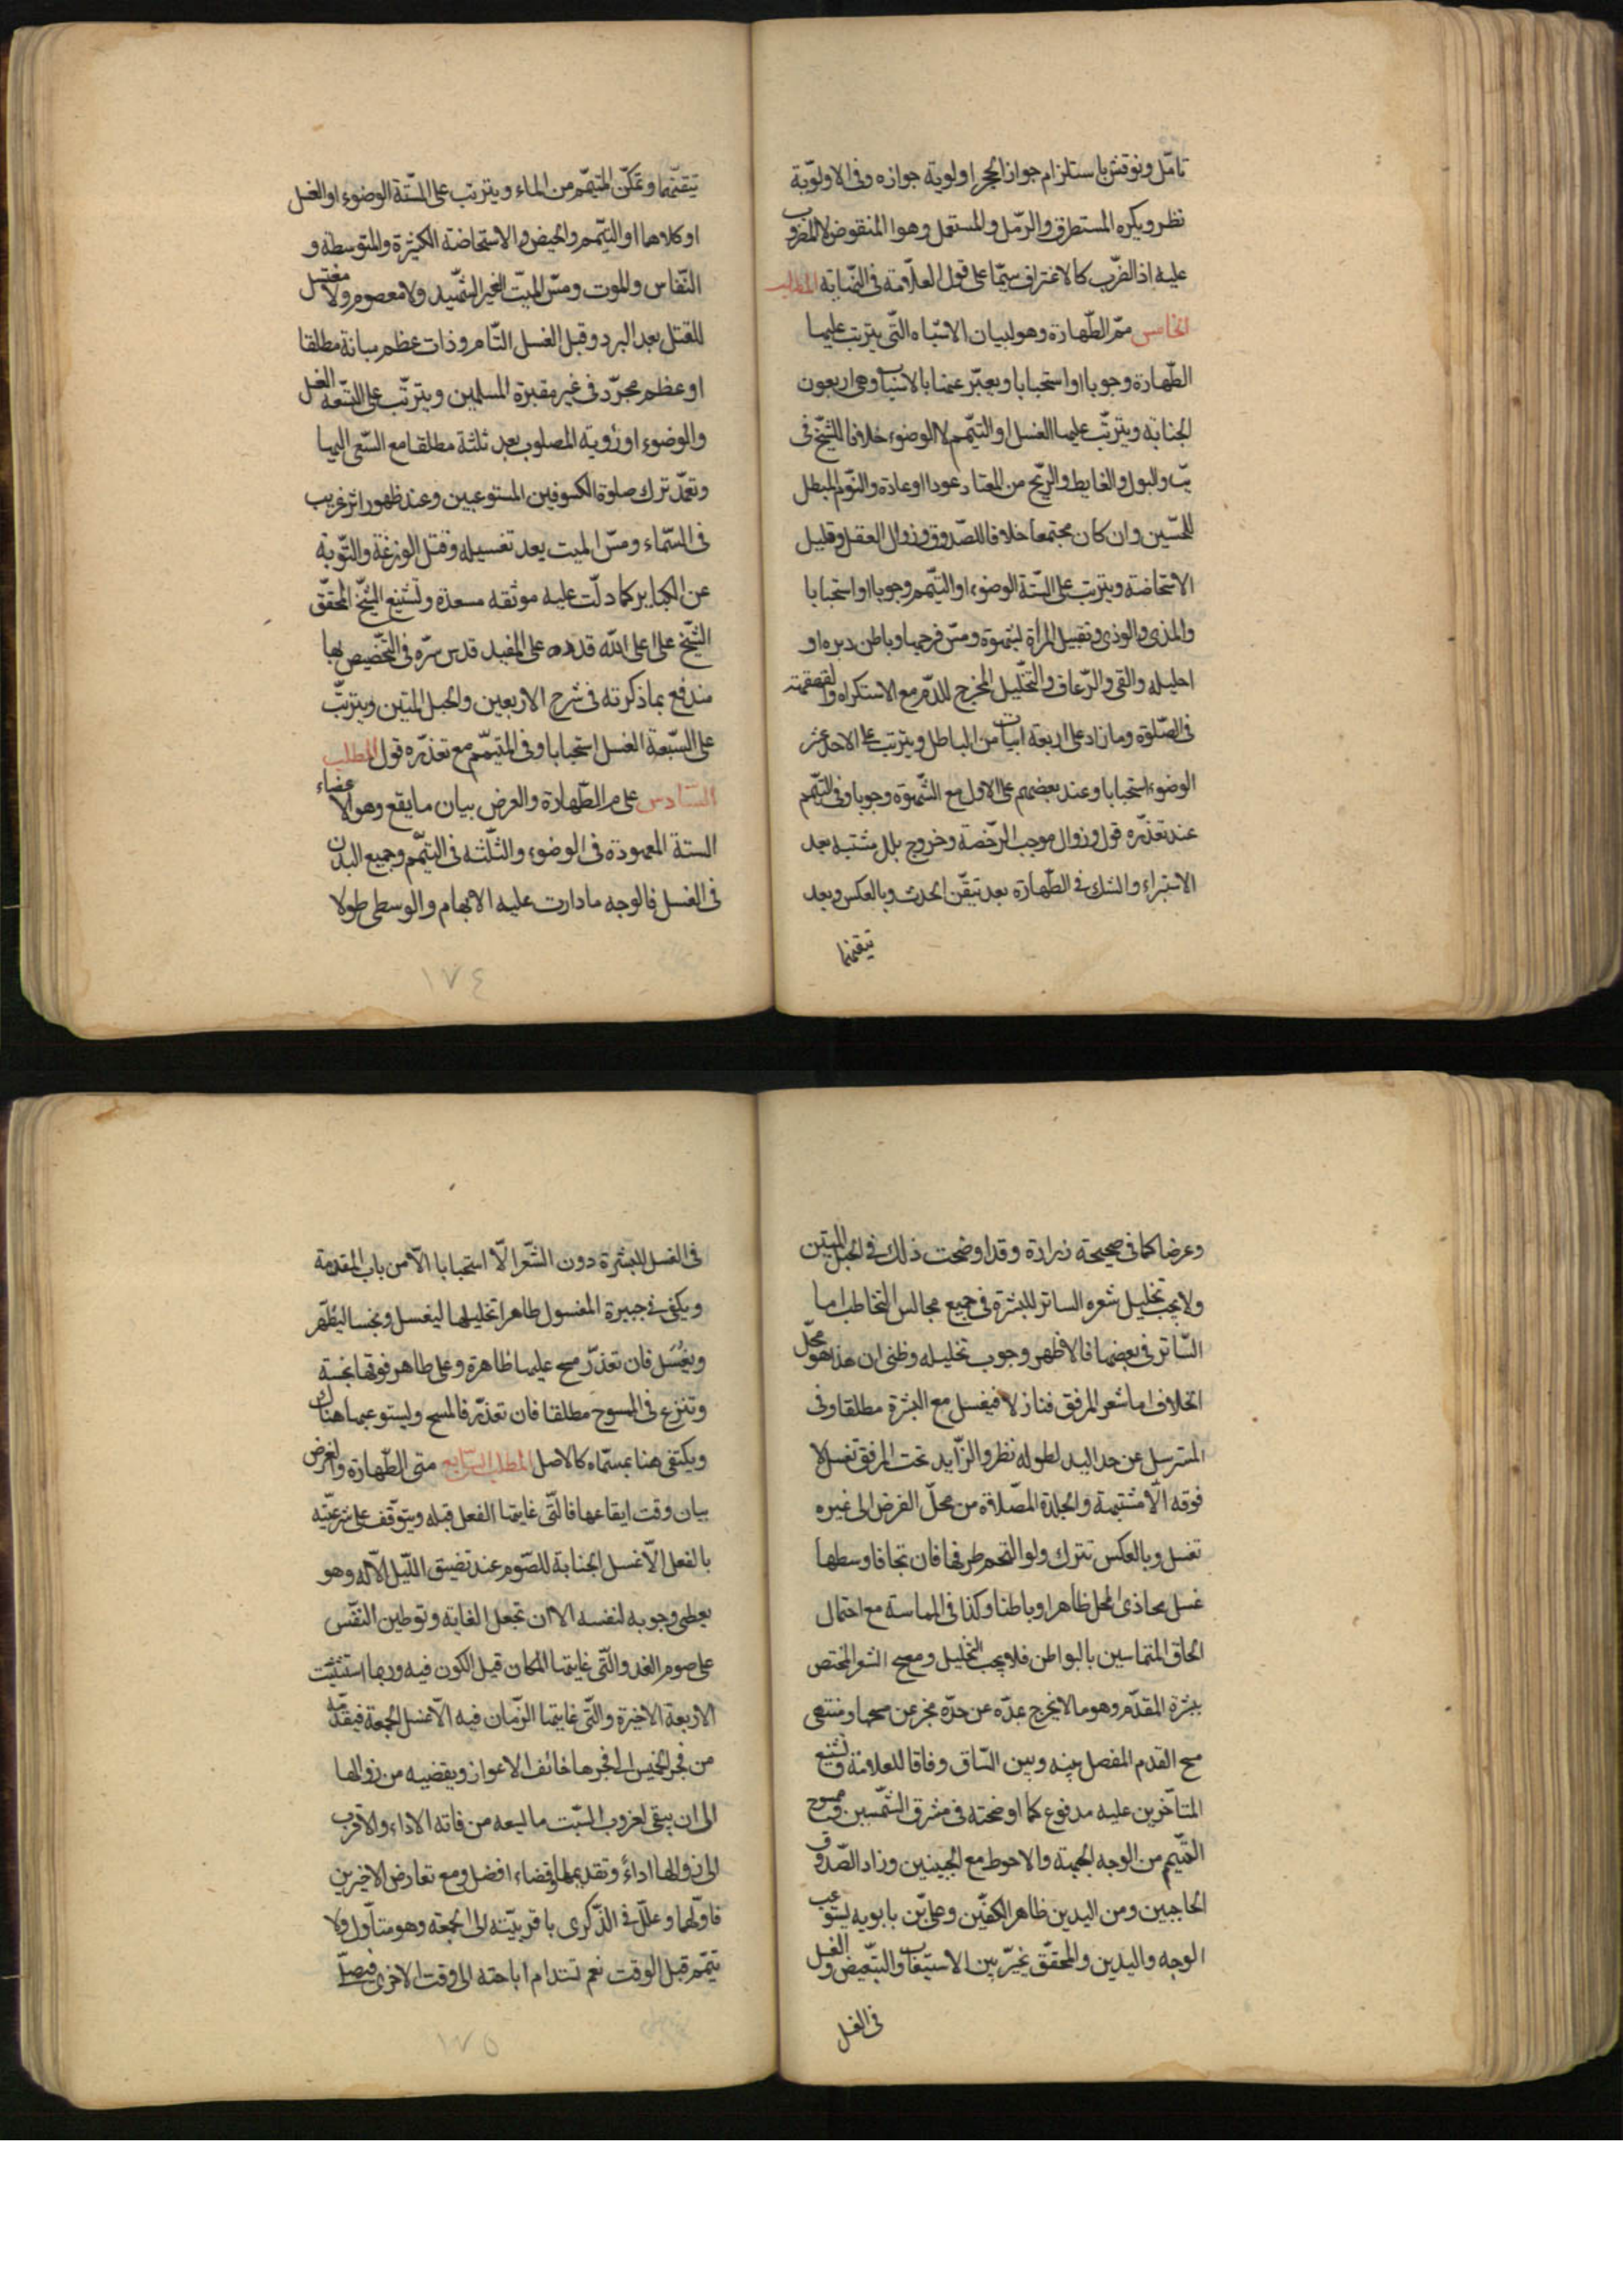 تامّل ونوقش باستلزام جواز الحجر اولوية جوازه وفى الاولوّية
نظر ويكره المستطرق والرّمل والمستعمل وهو المنقوض لا المضروب
عليه اذ الضّرب كالاغتراف سيّما على قول العلّامة فى النّهاية المطلب
الخامس ممّ الطّهارة وهو لبيان الاشياء الّتى يترتب عليها
الطّهارة وجوبا او استحبابا ويعبّر عنها بالاسباب وهى اربعون
الجنابة ويترتّب عليها الغسل او التيّمم لا الوضوء خلافا للشّيخ فى
يب والبول والغايط والرّيح من المعتاد عودا او عادة والنّوم المبطل
للحسّين وان كان مجتمعا خلافا للصّدوق وزوال العقل وقليل
الاستحاضة ويترتب على السّتة الوضوء او التيّمم وجوبا او استحبابا
والمذى والوذى وتقبيل المرأة لشهوة ومسّ فرجها وباطن دبره او
احليله والقى والرّعاف والتخّليل المخرج للدّم مع الاستكراه والقهقهة
فى الصّلوة وما زاد على اربعة ابيات من الباطل ويترتب على الاحد عشر
الوضوء استحبابا وعند بعضهم على الاول مع الشّهوة وجوبا وفى التيّمم
عند تعذّره قول وزوال موجب الرّخصة وخروج بلل مشتبه بعد
الاستبراء والشك فى الطّهارة بعد تيقّن الحدث وبالعكس وبعد
تيقنها
تيقنّها وتمكّن المتيمّم من الماء ويترتب على السّتة الوضوء او الغسل
او كلاهما او التيّمم والحيض والاستحاضة الكثيرة والمتوسطة و
النّفاس والموت ومسّ الميّت الغير الشّهيد ولا معصوم ولا مغتسل
للقتل بعد البرد وقبل الغسل التّام وذات عظم مبانة مطلقا
او عظم مجرّد فى غير مقبرة المسلمين ويترتّب على التّسعة الغسل
والوضوء او رؤية المصلوب بعد ثلثة مطلقا مع السّعى اليها
وتعمّد ترك صلوة الكسوفين المستوعبين وعند ظهور اثر غريب
فى السّماء ومسّ الميت بعد تغسيله وقتل الوزغة والتّوبة
عن الكباير كما دلّت عليه موثقه مسعدة وتشنيع الشّيخ المحقّق
الشّيخ على اعلى الله قدره على المفيد قدس سرّه فى التخّصيص بها
مندفع بما ذكرته فى شرح الاربعين والحبل المتين ويترتّب
على السّبعة الغسل استحبابا وفى المتيمّم مع تعذّره قول المطلب
السّادس علام الطّهارة والغرض بيان ما يقع وهو الاعضاء
الستة المعهودة فى الوضوء والثّلثه فى التيّمم وجميع البدن
فى الغسل فالوجه ما دارت عليه الابهام والوسطى طولا
١٧٤
وعرضا كما فى صحيحة زرارة وقد اوضحت ذلك فى الحبل المتين
ولا يجب تخليل شعره الساتر للبشرة فى جميع مجالس التخاطب اما
السّاتر فى بعضها فالاظهر وجوب تخليله وظنى ان هذا هو محلّ
الخلاف اما شعر المرفق فنازلا فيغسل مع البشرة مطلقا وفى
المسترسل عن حد اليد لطوله نظر والزّايد تحت المرفق تغسل لا
فوقه الّا مشتبهة والجلدة المتصّلة من محلّ الفرض الى غيره
تغسل وبالعكس تترك ولو التحم طرفها فان تجافا وسطها
غسل محاذى المحل ظاهرا وباطنا وكذا فى المماسة مع احتمال
الحاق المتماسين بالبواطن فلا يجب التخليل ومسح الشعر المختص
ببشرة المقدّم وهو ما لا يخرج بمدّه عن حدّه مجز عن مسحها ومنتهى
مسح القدم المفصل بينه وبين السّاق وفاقا للعلامة وتشنيع
المتأخرين عليه مدفوع كما اوضحته فى مشرق الشّمسين وممسوح
التيّمم من الوجه الجبهة والاحوط مع الجبينين وزاد الصّدوق
الحاجبين ومن اليدين ظاهر الكفّين وعلى بّن بابويه يستوعب
الوجه واليدين والمحقّق يخيّر بين الاستيعاب والتبّعيض والغسل
فى الغسل
فى الغسل للبشرة دون الشّعر الّا استحبابا الّا من باب المقدمة
ويكفى فى جبيرة المغسول طاهرا تخليلها ليغسل ونجسا ليطهّر
ويغسل فان تعذّر مسح عليها ظاهرة وعلى طاهر فوقها نجسة
وتنزع فى المسوح مطلقا فان تعذّر فالمسح ويستوعبها هناك
ويكتفى هنا بمسمّاه كالاصل المطلب السّابع متى الطّهارة والغرض
بيان وقت ايقاعها فالّتى غايتها الفعل قبله ويتوّقف على شرعيّته
بالفعل الّا غسل الجنابة للصّوم عند تضيق اللّيل الّا له وهو
يعطى وجوبه لنفسه الا ان تجعل الغاية وتوطين النفّس
على صوم الغد والّتى غايتها المكان قبل الكون فيه وربما استثنيت
الاربعة الاخيرة والّتى غايتها الزّمان فيه الّا غسل الجمعة فيقدّمه
من فجر الخميس الى فجرها خائف الاعواز ويقضيه من زوالها
الى ان يبقى لغروب السّبت ما ليسعه من فاته الاداء والاقرب
الى زوالها اداءً وتقديمها وقضاء افضل ومع تعارض الاخيرين
فاوّلهما وعلّل فى الذّكرى باقربيّته الى الجمعة وهو متأوّل ولا
تيمّم قبل الوقت نعم تستدام اباحته الى وقت الاخرى فيصلّ
١٧٥